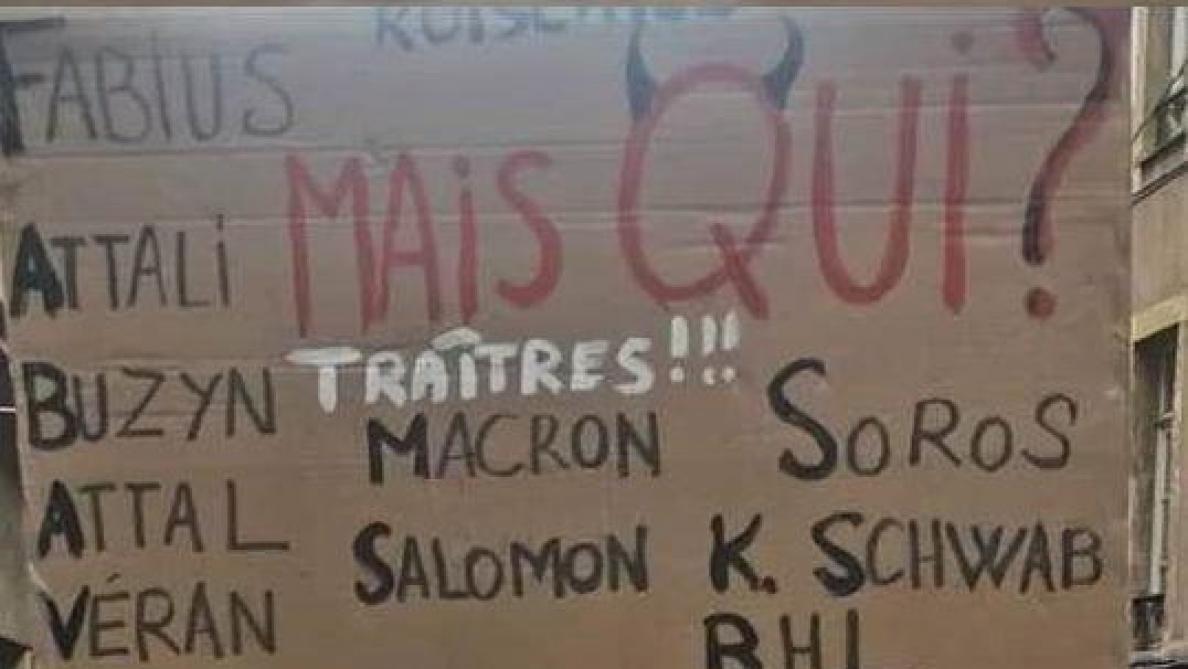 FABIUS
MAIS QUI?
ATTALI
TRAÎTRES!!!
BUZYN
MACRON
SOROS
ATTAL
SALOMON
K. SCHWAB
VÉRAN
BHL